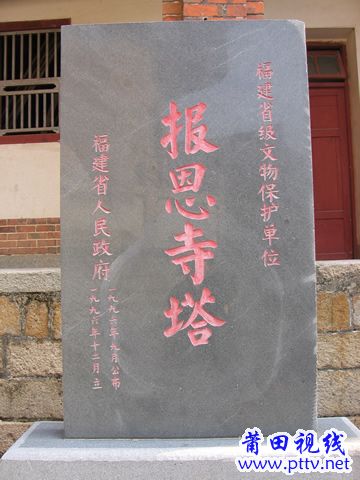 福建省级文物保护单位
报恩寺塔
福建省人民政府
一九九六年九月公布
一九九六年十二月立
莆田视线
www.pttv.net